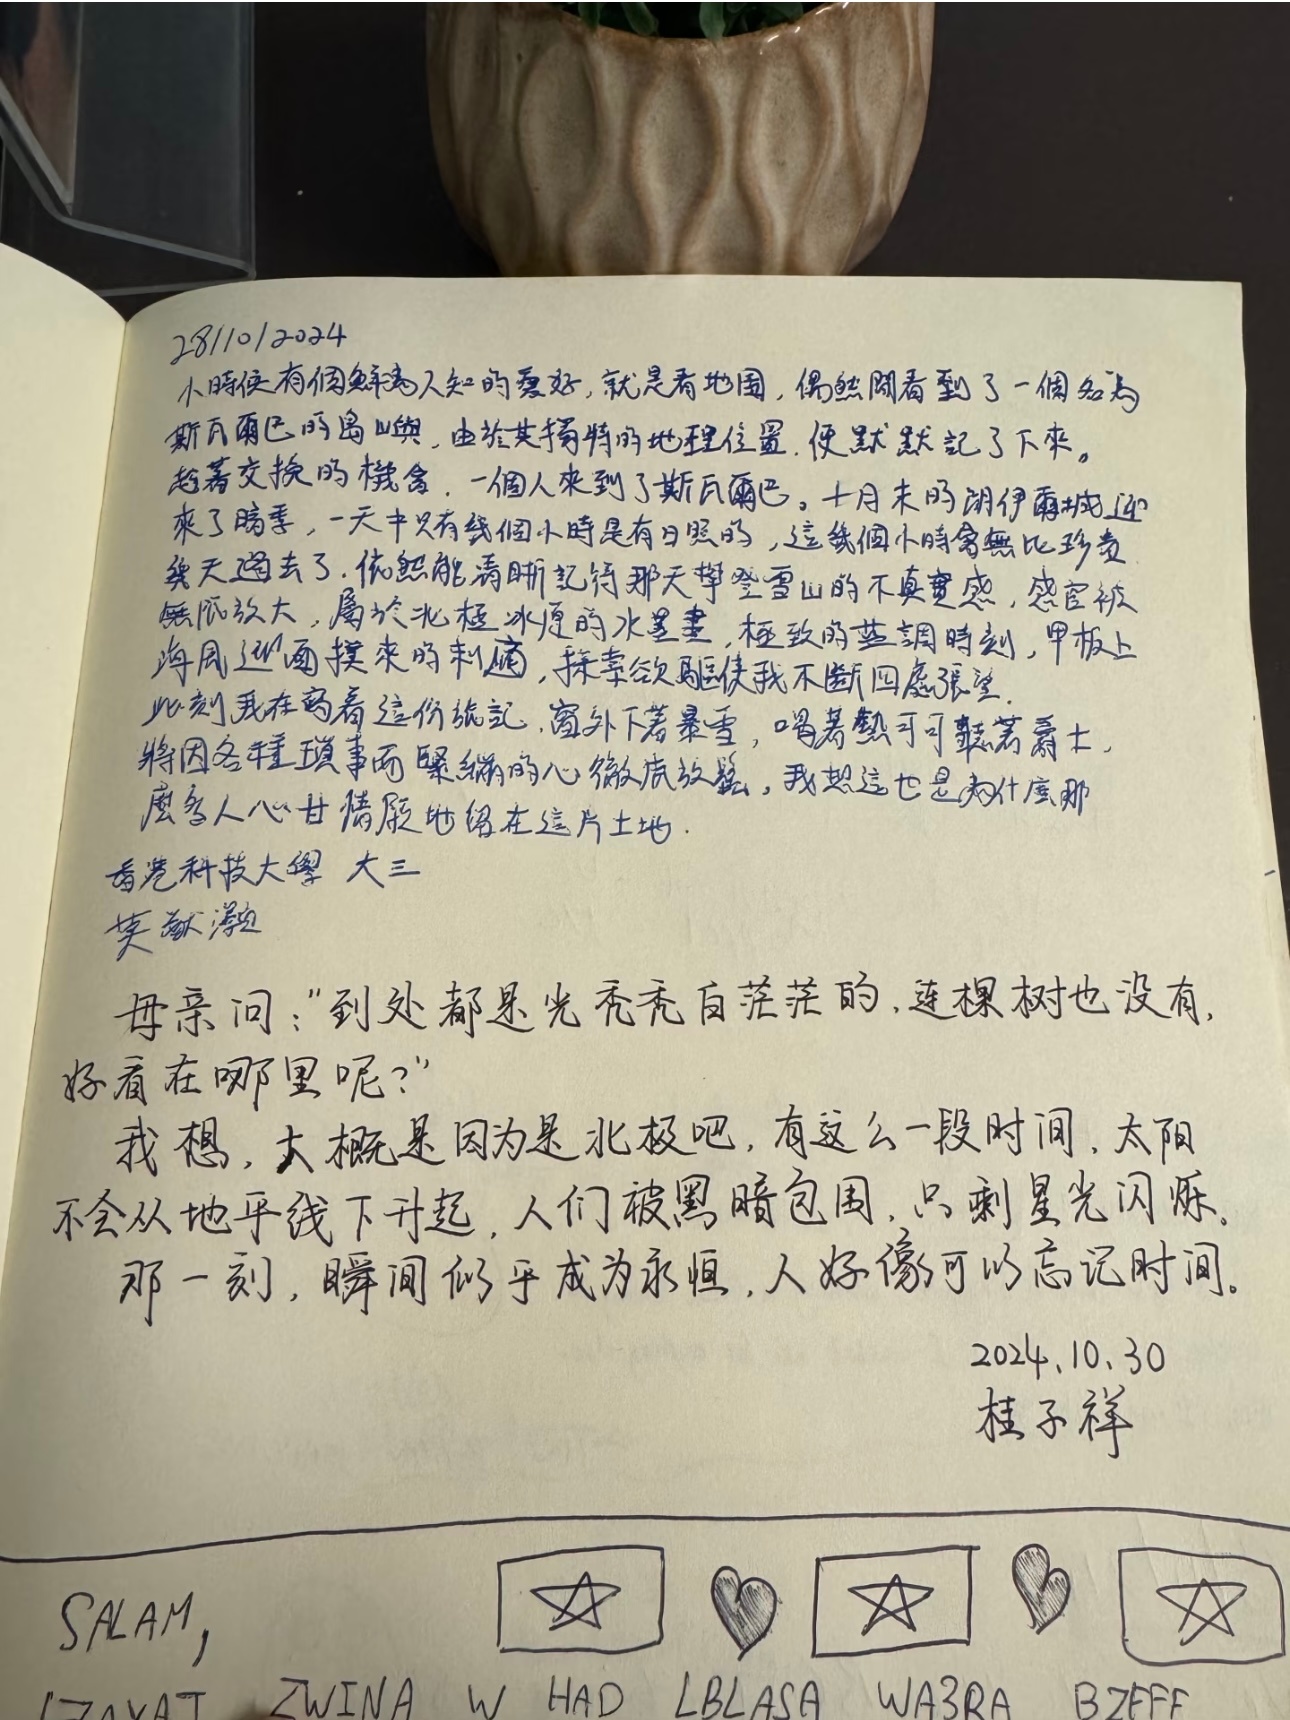 28/10/2024
小時候有個鮮為人知的愛好，就是看地圖，偶然間看到了一個名為
斯瓦爾巴的島嶼，由於其獨特的地理位置，便默默記了下來。
趁著交換的機會，一個人來到了斯瓦爾巴。十月末的朗伊爾城迎
來了暗季，一天中只有幾個小時是有日照的，這幾個小時會無比珍貴
幾天過去了，依然能清晰記得那天攀登雪山的不真實感，感官被
無限放大，屬於北極冰原的水墨畫，極致的藍調時刻，甲板上
海風迎面撲來的刺痛，探索欲驅使我不斷四處張望
此刻我在寫着這份號記，窗外下著暴雪，喝著熱可可聽著爵士，
將因各種瑣事而緊繃的心徹底放鬆，我想這也是為什麼那
麼多人心甘情願地留在這片土地.
香港科技大學 大三
母亲问："到处都是光秃秃白茫茫的，连棵树也没有，
好看在哪里呢?"
我想，大概是因为是北极吧，有这么一段时间，太阳
不会从地平线下升起，人们被黑暗包围，只剩星光闪烁。
那一刻，瞬间似乎成为永恒，人好像可以忘记时间。
2024.10.30
桂子祥
SALAM,
ZWINA W HAD LBLASA WA3RA BZFFF